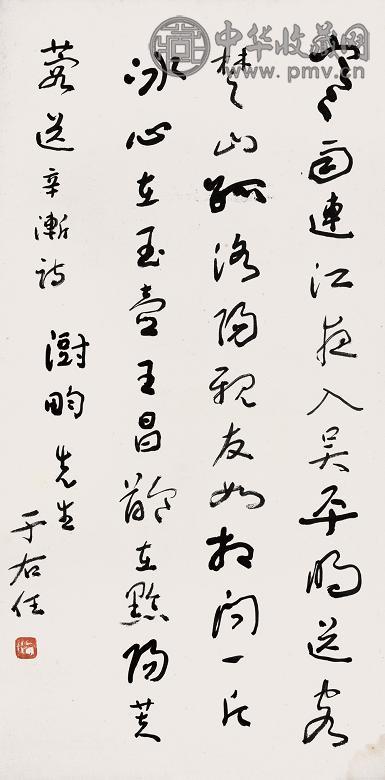 中华收藏网
www.pmv.cn
寒雨連江夜入吳平明送客
楚山孤洛陽親友如相問一片
冰心在玉壺王昌齡在黔陽芙
蓉送辛漸詩
澍畇先生
于右任